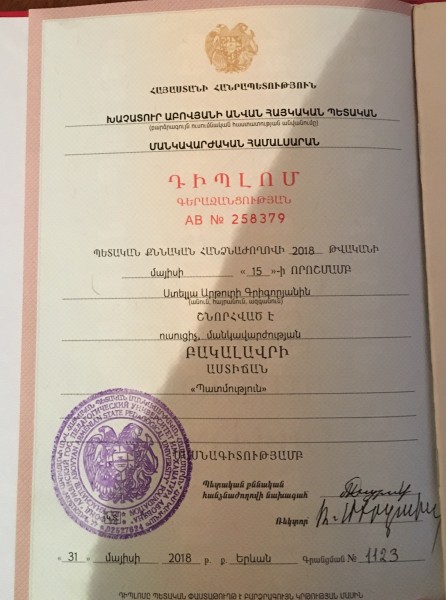 ՀԱՅԱՍՏԱՆԻ ՀԱՆՐԱՊԵՏՈՒԹՅՈՒՆ
ԽԱՉԱՏՈՒՐ ԱԲՈՎՅԱՆԻ ԱՆՎԱՆ ՀԱՅԿԱԿԱՆ ՊԵՏԱԿԱՆ
(բարձրագույն ուսումնական հաստատության անվանումը)
ՄԱՆԿԱՎԱՐԺԱԿԱՆ ՀԱՄԱԼՍԱՐԱՆ
ԴԻՊԼՈՄ
ԳԵՐԱԶԱՆՑՈՒԹՅԱՆ
AB № 258379
ՊԵՏԱԿԱՆ ՔՆՆԱԿԱՆ ՀԱՆՁՆԱԺՈՂՈՎԻ 2018 ԹՎԱԿԱՆԻ
մայիսի « 15 »-ի ՈՐՈՇՄԱՄԲ
Ստելլա Արթուրի Գրիգորյանին
(անուն, հայրանուն, ազգանուն)
ՇՆՈՐՀՎԱԾ Է
ուսուցիչ, մանկավարժության
ԲԱԿԱԼԱՎՐԻ
ԱՍՏԻՃԱՆ
«Պատմություն»
ՄԱՍՆԱԳԻՏՈՒԹՅԱՄԲ
Պետական քննական
հանձնաժողովի նախագահ
Ռեկտոր
« 31 » մայիսի 2018 թ. ք. Երևան Գրանցման № 1123
ԴԻՊԼՈՄԸ ՊԵՏԱԿԱՆ ՓԱՍՏԱԹՈՒՂԹ Է ԲԱՐՁՐԱԳՈՒՅՆ ԿՐԹՈՒԹՅԱՆ ՄԱՍԻՆ